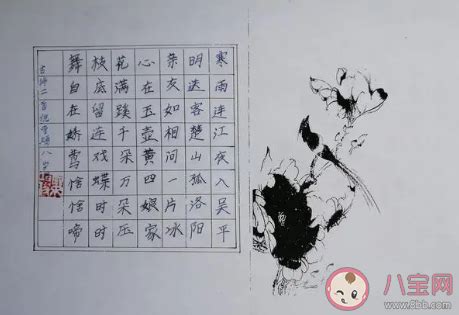 寒雨连江夜入吴平
明送客楚山孤洛阳
亲友如相问一片冰
心在玉壶黄四娘家
花满蹊千朵万朵压
枝底留连戏蝶时时
舞自在娇莺恰恰啼
古诗二首 八岁
八宝网
www.8bb.com